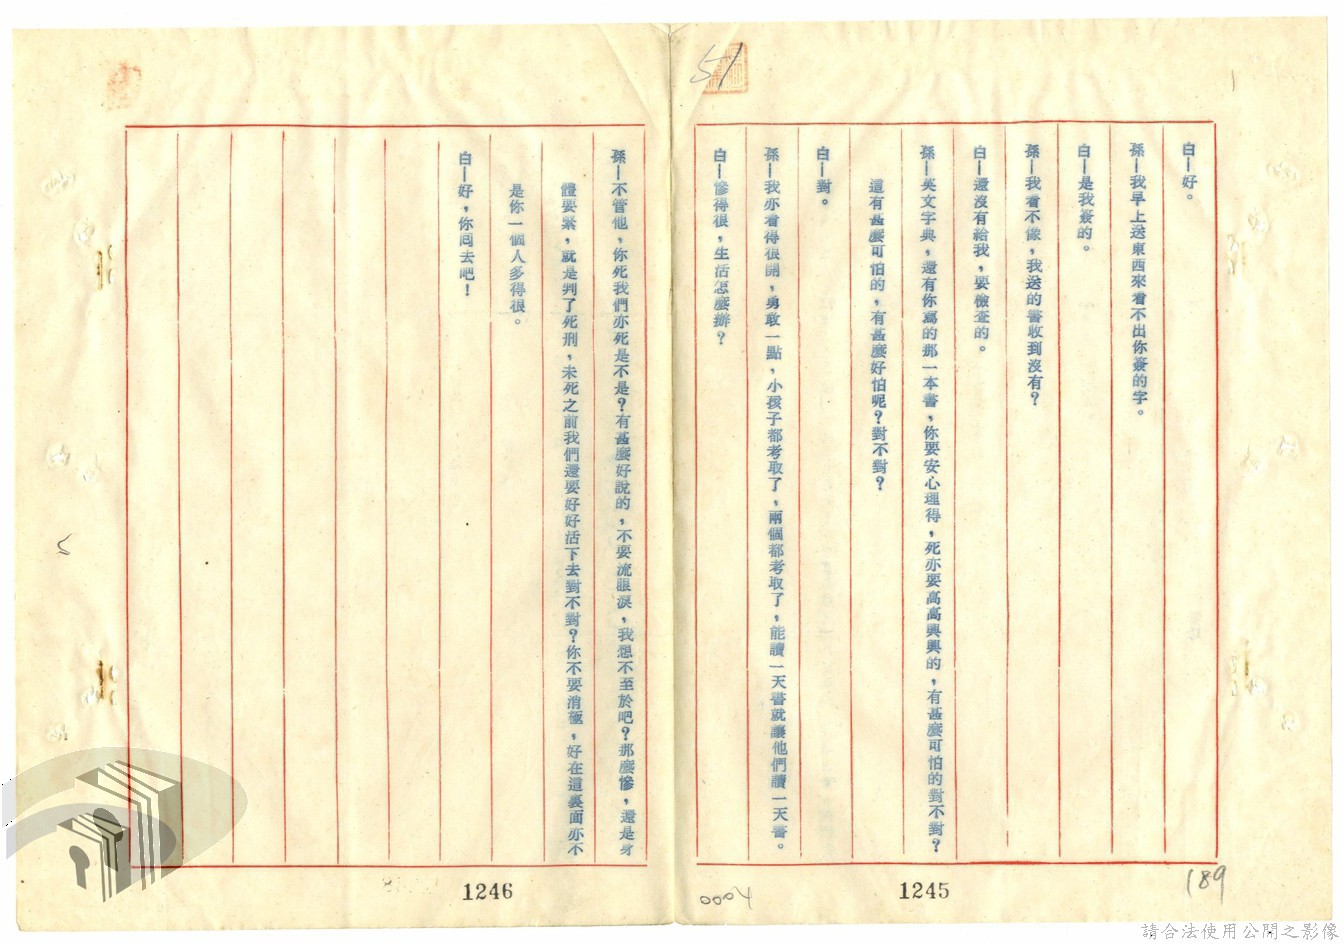 白—好。
孫—我早上送東西來看不出你簽的字。
白—是我簽的。
孫—我看不像，我送的書收到沒有？
白—還沒有給我，要檢查的。
孫—英文字典，還有你寫的那一本書，你要安心理得，死亦要高高興興的，有甚麼可怕的對不對？
這有甚麼可怕的，有甚麼好怕呢？對不對？
白—對。
孫—我亦看得很開，勇敢一點，小孩子都考取了，兩個都考取了，能讀一天書就讓他們讀一天書。
白—慘得很，生活怎麼辦？
孫—不管他，你死我們亦死是不是？有甚麼好說的，不要流眼淚，我想不至於吧？那麼慘，還是身
體要緊，就是判了死刑，未死之前我們還要好好活下去對不對？你不要消極，好在這裏面亦不
是你一個人多得很。
白—好，你回去吧！
51
5
1246
0004
1245
189
請合法使用公開之影像